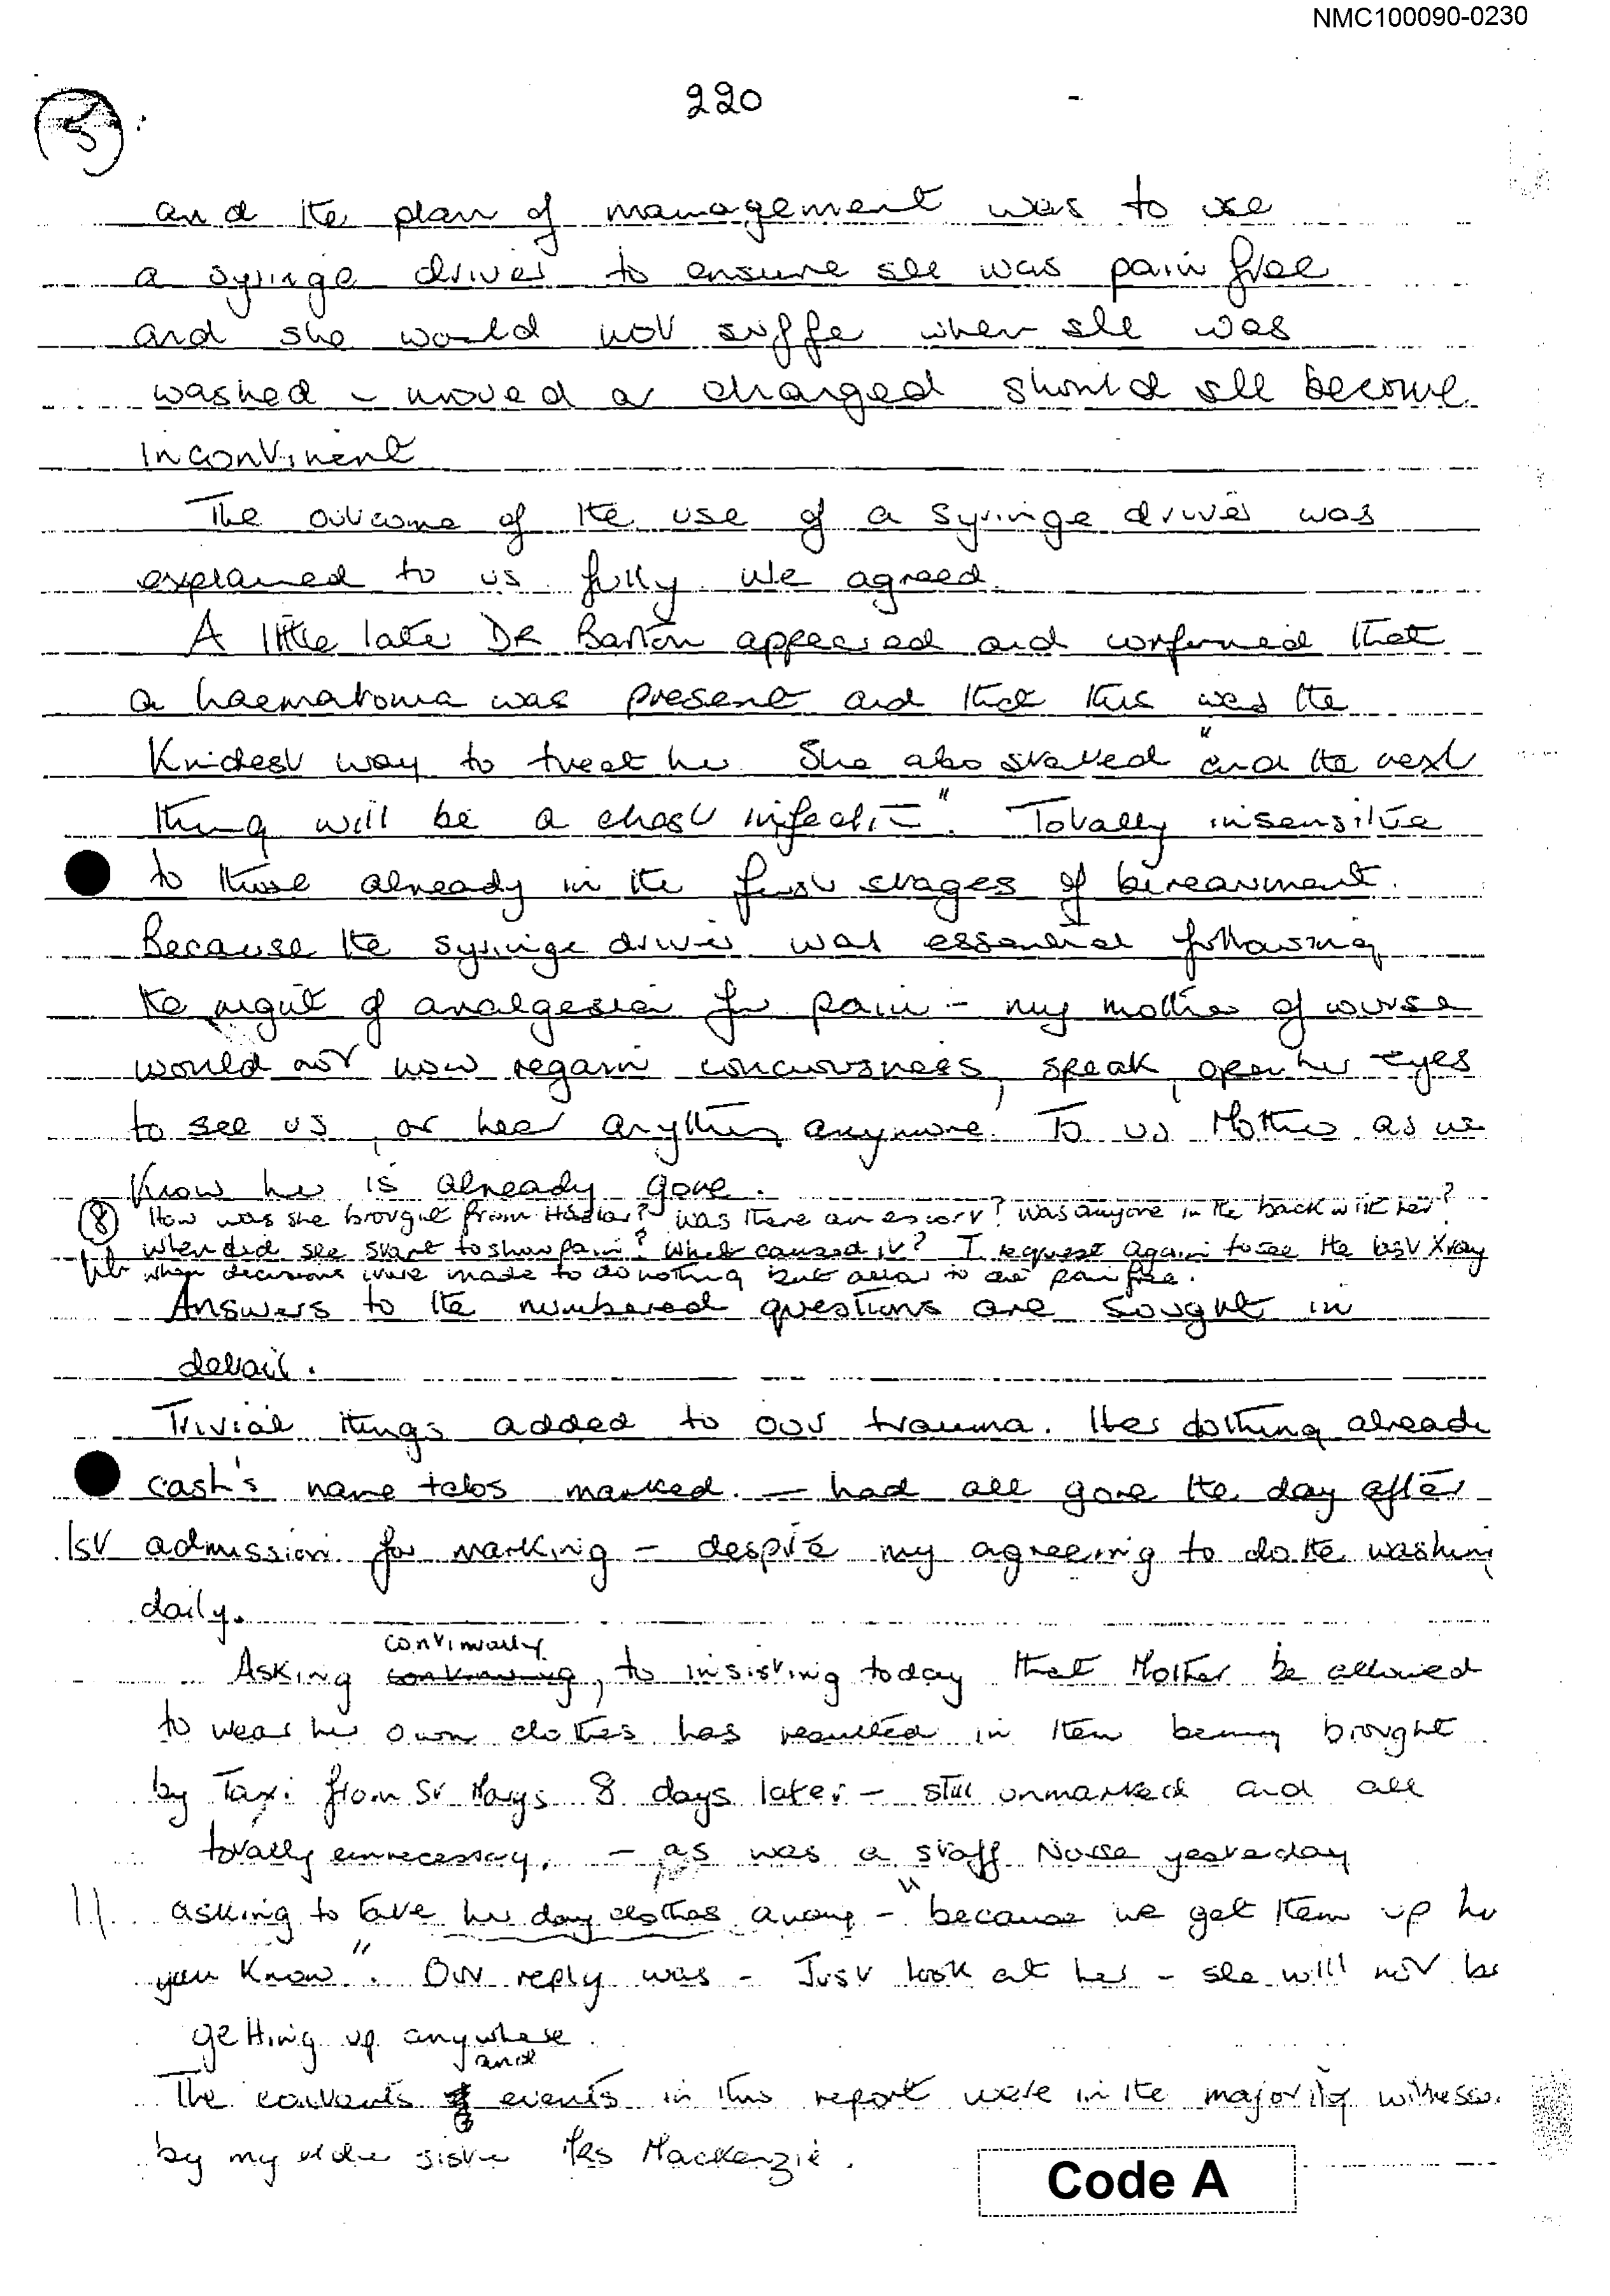 NMC100090-0230
220
5
and the plan of management was to use
a syringe driver to ensure she was pain free
and she would not suffe when she was
washed - moved or changed should she become
incontinent
The outcome of the use of a syringe driver was
explained to us fully. We agreed.
A little later DR Barton appeared and confirmed that
a haematoma was present and that this was the
Kindest way to treat her. She also stated "and the next
thing will be a chest infection". Totally insensitive
to those already in the first stages of bereavment.
Because the syringe driver was essential following
the night of analgesia for pain - my mother of course
would not now regain conciousness, speak, open her eyes
to see us, or hear anything anymore. To us Mother as we
Know her is already gone.
8 How was she brought from Haslar? Was there an escort? Was anyone in the back with her?
When did she start to show pain? What caused it? I request again to see the last Xray
when decisions were made to do nothing but allow to die pain free.
Answers to the numbered questions are sought in
detail.
Trivial things added to our trauma. Her clothing already
cash's name tabs marked. - had all gone the day after
1st admission for marking - despite my agreeing to do the washing
daily.
continually
Asking continuing, to insisting today that Mother be allowed
to wear her own clothes has resulted in them being brought
by Taxi from St Marys 8 days later - still unmarked and all
totally unnecessary. - as was a staff Nurse yesterday
asking to take her day clothes away - "because we get them up here
you know". Our reply was - Just look at her - she will not be
getting up anywhere.
and
The contents of events in this report were in the majority witnessed
by my elder sister Mrs MacKenzie.
Code A